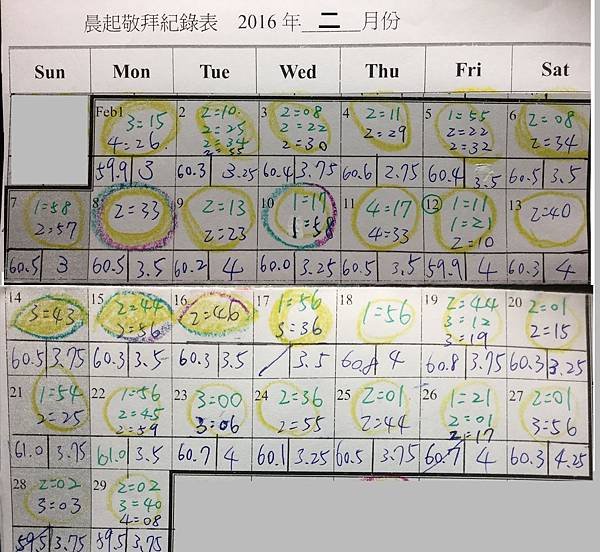 晨起敬拜紀錄表 2016年 二 月份
Sun Mon Tue Wed Thu Fri Sat
Feb1 2 3 4 5 6
3=15 2=10 2=08 2=11 1=55 2=08
4=26 2=25 2=22 2=29 2=22 2=34
2=34 2=30 2=32
2=55
59.9 3 60.3 3.25 60.4 3.75 60.6 2.75 60.4 3.5 60.5 3.5
7 8 9 10 11 12 13
1=58 2=33 2=13 1=17 4=17 1=11 2=40
2=57 2=23 1=58 4=33 1=21
2=10
60.5 3 60.5 3.5 60.2 4 60.0 3.25 60.5 3.5 59.9 4 60.3 4
14 15 16 17 18 19 20
3=43 2=44 2=46 1=56 1=56 2=44 2=01
3=56 3=36 3=12 2=15
3=19
60.5 3.75 60.3 3.5 60.3 3.5 / 3.5 4 60.8 3.75 60.3 3.25
21 22 23 24 25 26 27
1=54 1=56 3=00 2=36 2=01 1=21 2=01
2=25 2=45 3=06 2=55 2=44 2=01 3=56
2=59 2=17
61.0 3.75 61.0 3.5 60.7 4 60.1 3.25 60.5 3.75 60.7 4 60.3 4.25
28 29
2=02 2=02
3=03 3=40
4=08
59.5 3.75 59.5 3.75